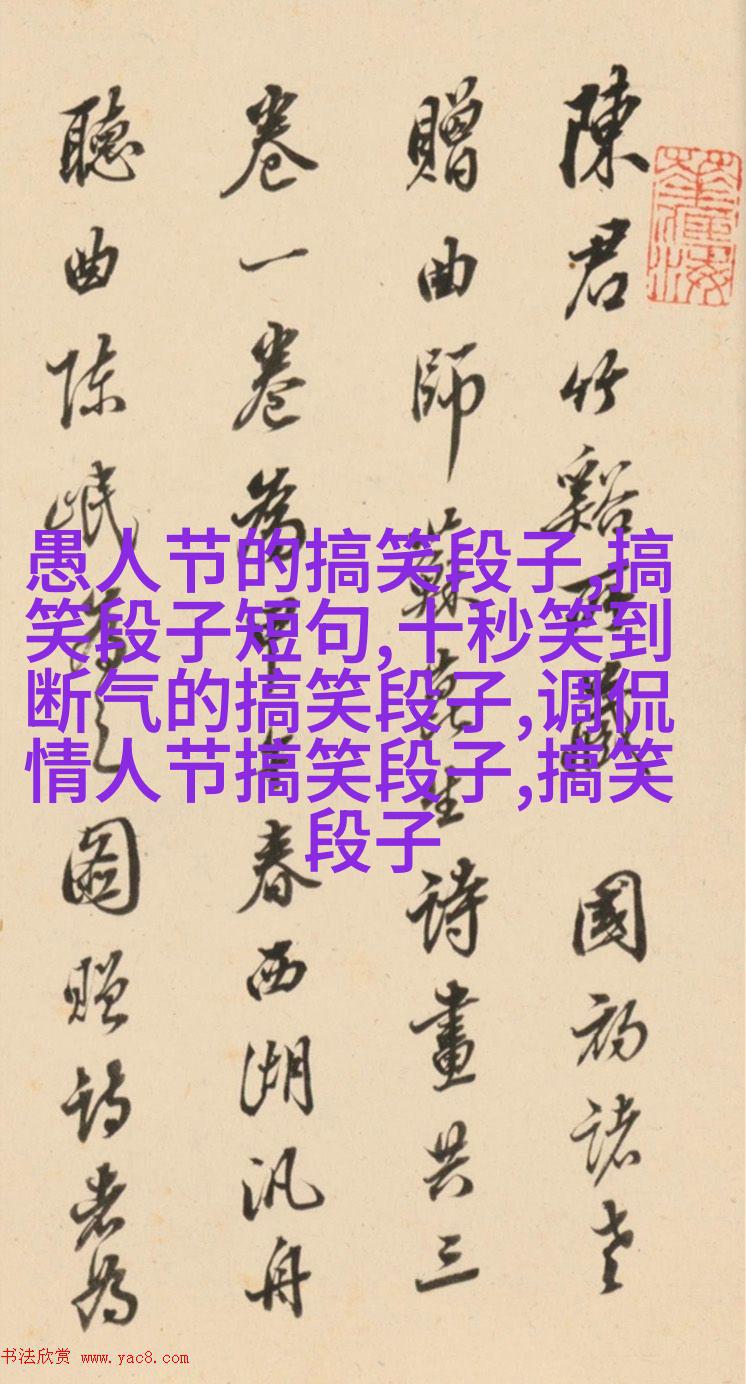 陳君竹谿所藏 國初諸老
贈曲師蘇崑生詩畫共三
卷一卷為甲午春西湖汎舟
聽曲陈岷為之圖贈詩者為
愚人节的搞笑段子,搞
笑段子短句,十秒笑到
断气的搞笑段子,调侃
情人节搞笑段子,搞笑
段子
书法欣赏 www.yac8.com